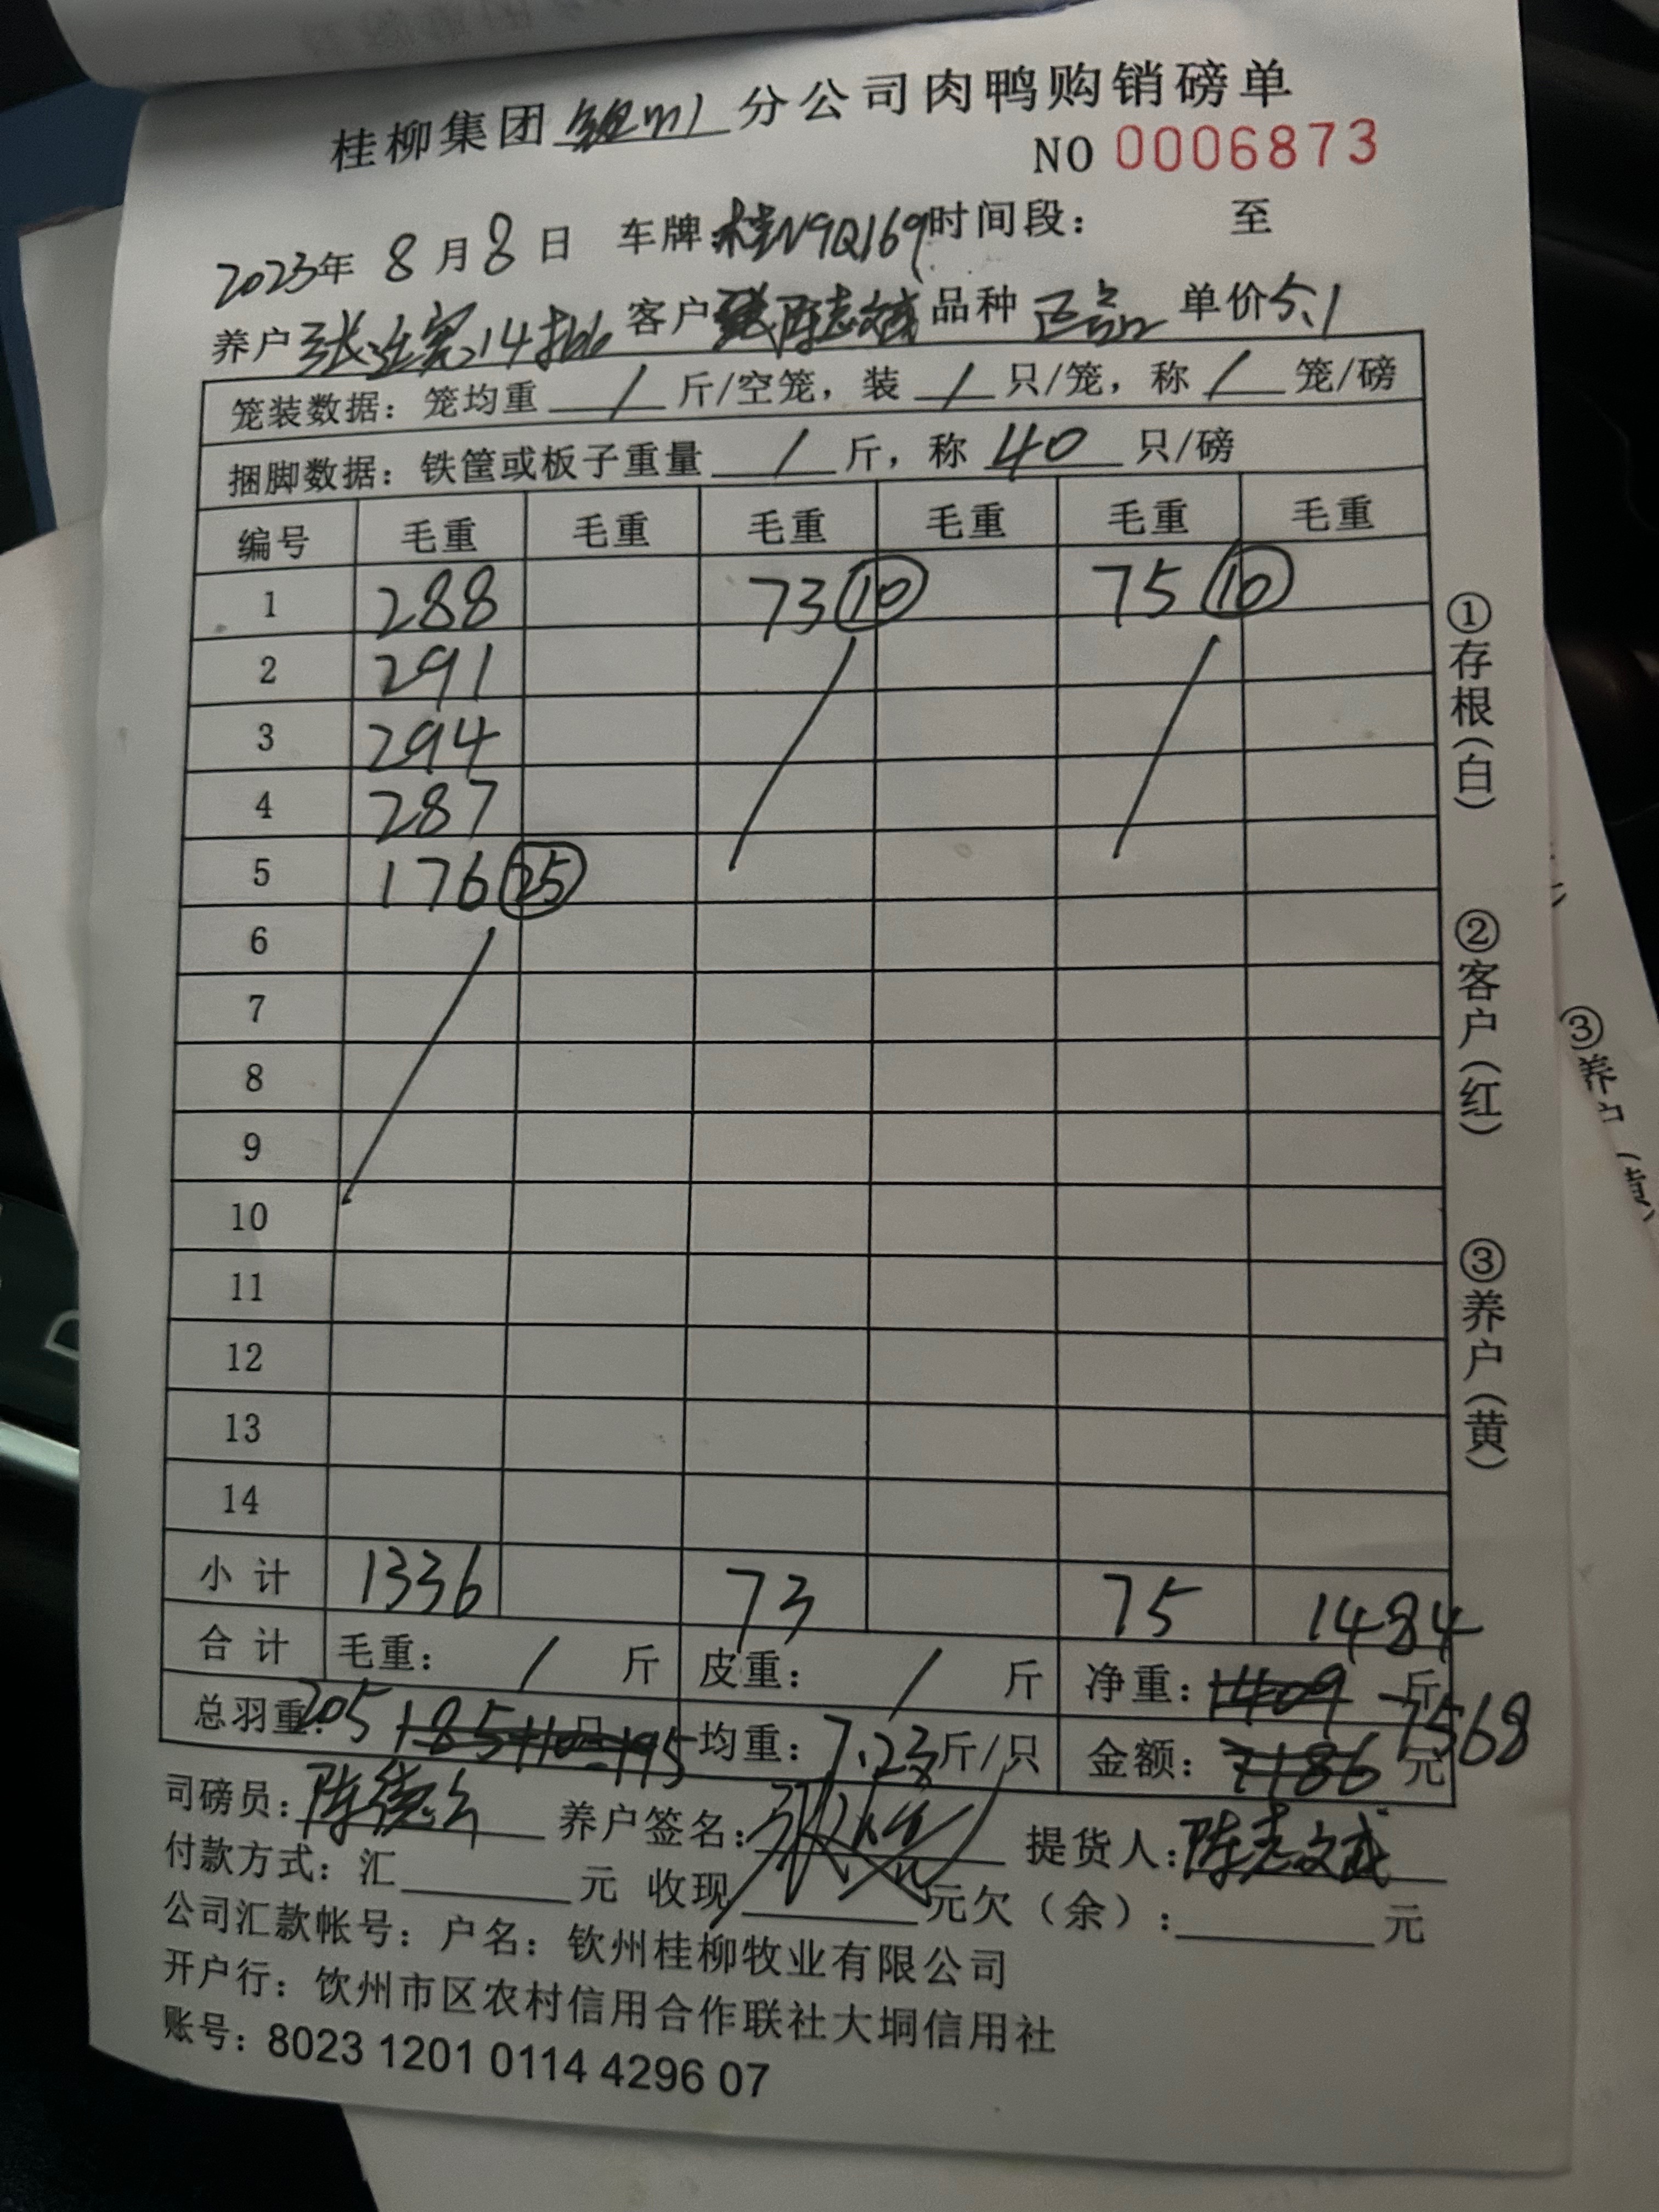 桂柳集团 分公司肉鸭购销磅单
NO 0006873
2023年 8月8日 车牌:桂N9Q169 时间段: 至
养户 张 14批 客户 陈志文成 品种 正品 单价5.1
笼装数据：笼均重 / 斤/空笼，装 / 只/笼，称 / 笼/磅
捆脚数据：铁筐或板子重量 / 斤，称 40 只/磅
编号 毛重 毛重 毛重 毛重 毛重 毛重
1 288 73 10 75 10
2 291
3 294
4 287
5 176 25
6
7
8
9
10
11
12
13
14
小计 1336 73 75 1484
合计 毛重： / 斤 皮重： / 斤 净重：1409 斤
总羽重：205 185+10=195 均重：7.23斤/只 金额：7186 元 7568
司磅员：陈德 养户签名： 提货人：陈志文成
付款方式：汇 元 收现 元欠（余）： 元
公司汇款帐号：户名：钦州桂柳牧业有限公司
开户行：钦州市区农村信用合作联社大垌信用社
账号：8023 1201 0114 4296 07
①存根（白）
②客户（红）
③养户（黄）
③养户（黄）